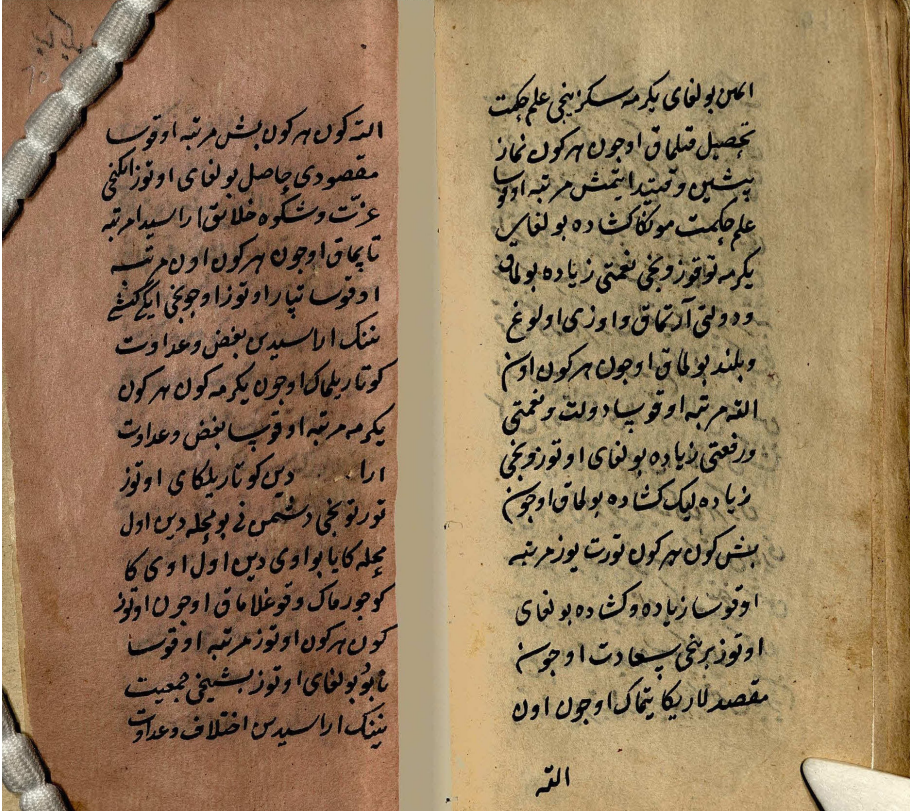 ایمن بولغای یکرمه سکزینجی علم حکمت
تحصیل قیلماق اوچون هر کون نماز
پیشین وقتیدا یتمش مرتبه اوقوسا
علم حکمت مونکا کشاده بولغای
یکرمه توقوزونجی نعمتی زیاده بولماق
و دولتی آرتماق و اوزی اولوغ
و بلند بولماق اوچون هر کون اون
التی مرتبه اوقوسا دولت و نعمتی
و رفعتی زیاده بولغای اوتوزونجی
زیاده لیک کشاده بولماق اوچون
بش کون هر کون تورت یوز مرتبه
اوقوسا زیاده و کشاده بولغای
اوتوز برینجی سعادت اوچون
مقصدلاریکا یتماک اوچون اون
التی
التی کون هر کون بش مرتبه اوقوسا
مقصودی حاصل بولغای اوتوز ایکنجی
عزت و شکوه خلائق اراسیدا مرتبه
تاپماق اوچون هر کون اون مرتبه
اوقوسا تپار اوتوز اوچونجی ایکی کشی
نینک اراسیدین بغض و عداوت
کوتاریلماک اوچون یکرمه کون هر کون
یکرمه مرتبه اوقوسا بغض و عداوت
ارا دین کوتاریلکای اوتوز
تورتونجی دشمن نی بو محله دین اول
محله کا یا بو اوی دین اول اوی کا
کوچورماک و قوغلاماق اوچون اوتوز
کون هر کون اوتوز مرتبه اوقوسا
بولغای اوتوز بشینجی جمعیت
نینک اراسیدین اختلاف و عداوت